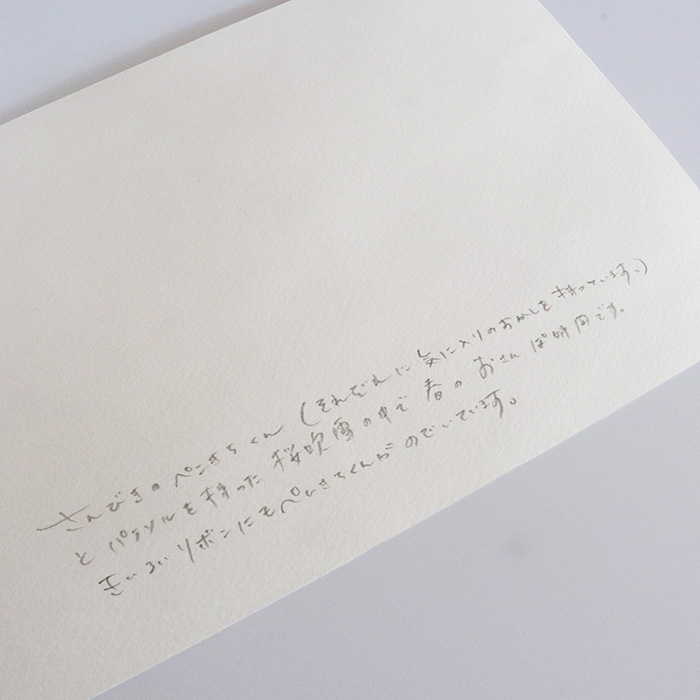 さんびきのペンきちくん(それぞれに気に入りのおかしを持っています。)
とパラソルを持った桜吹雪の中で春のおさんぽ時間です。
きいろいリボンにもペンきちくんがのぞいています。